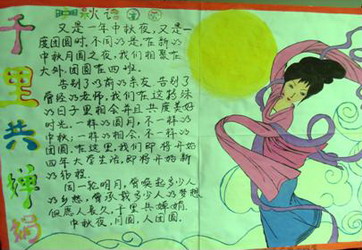 千里共婵娟
中秋语
又是一年中秋夜,又是一
度团圆时,不同的是,在新的
中秋月圆之夜,我们相聚在
大外,团圆在四班。
告别了旧的亲友,告别了
曾经的老师,我们在这特殊
的日子里相会并且共度美好
时光。一样的圆月,不一样的
中秋;一样的相会,不一样的
团圆。在这里,我们即将开始
四年大学生活,即将开始新
的征程。
同一轮明月,曾唤起多少人
的乡愁,曾承载多少人的梦想
但愿人长久,千里共婵娟。
中秋夜,月圆,人团圆。